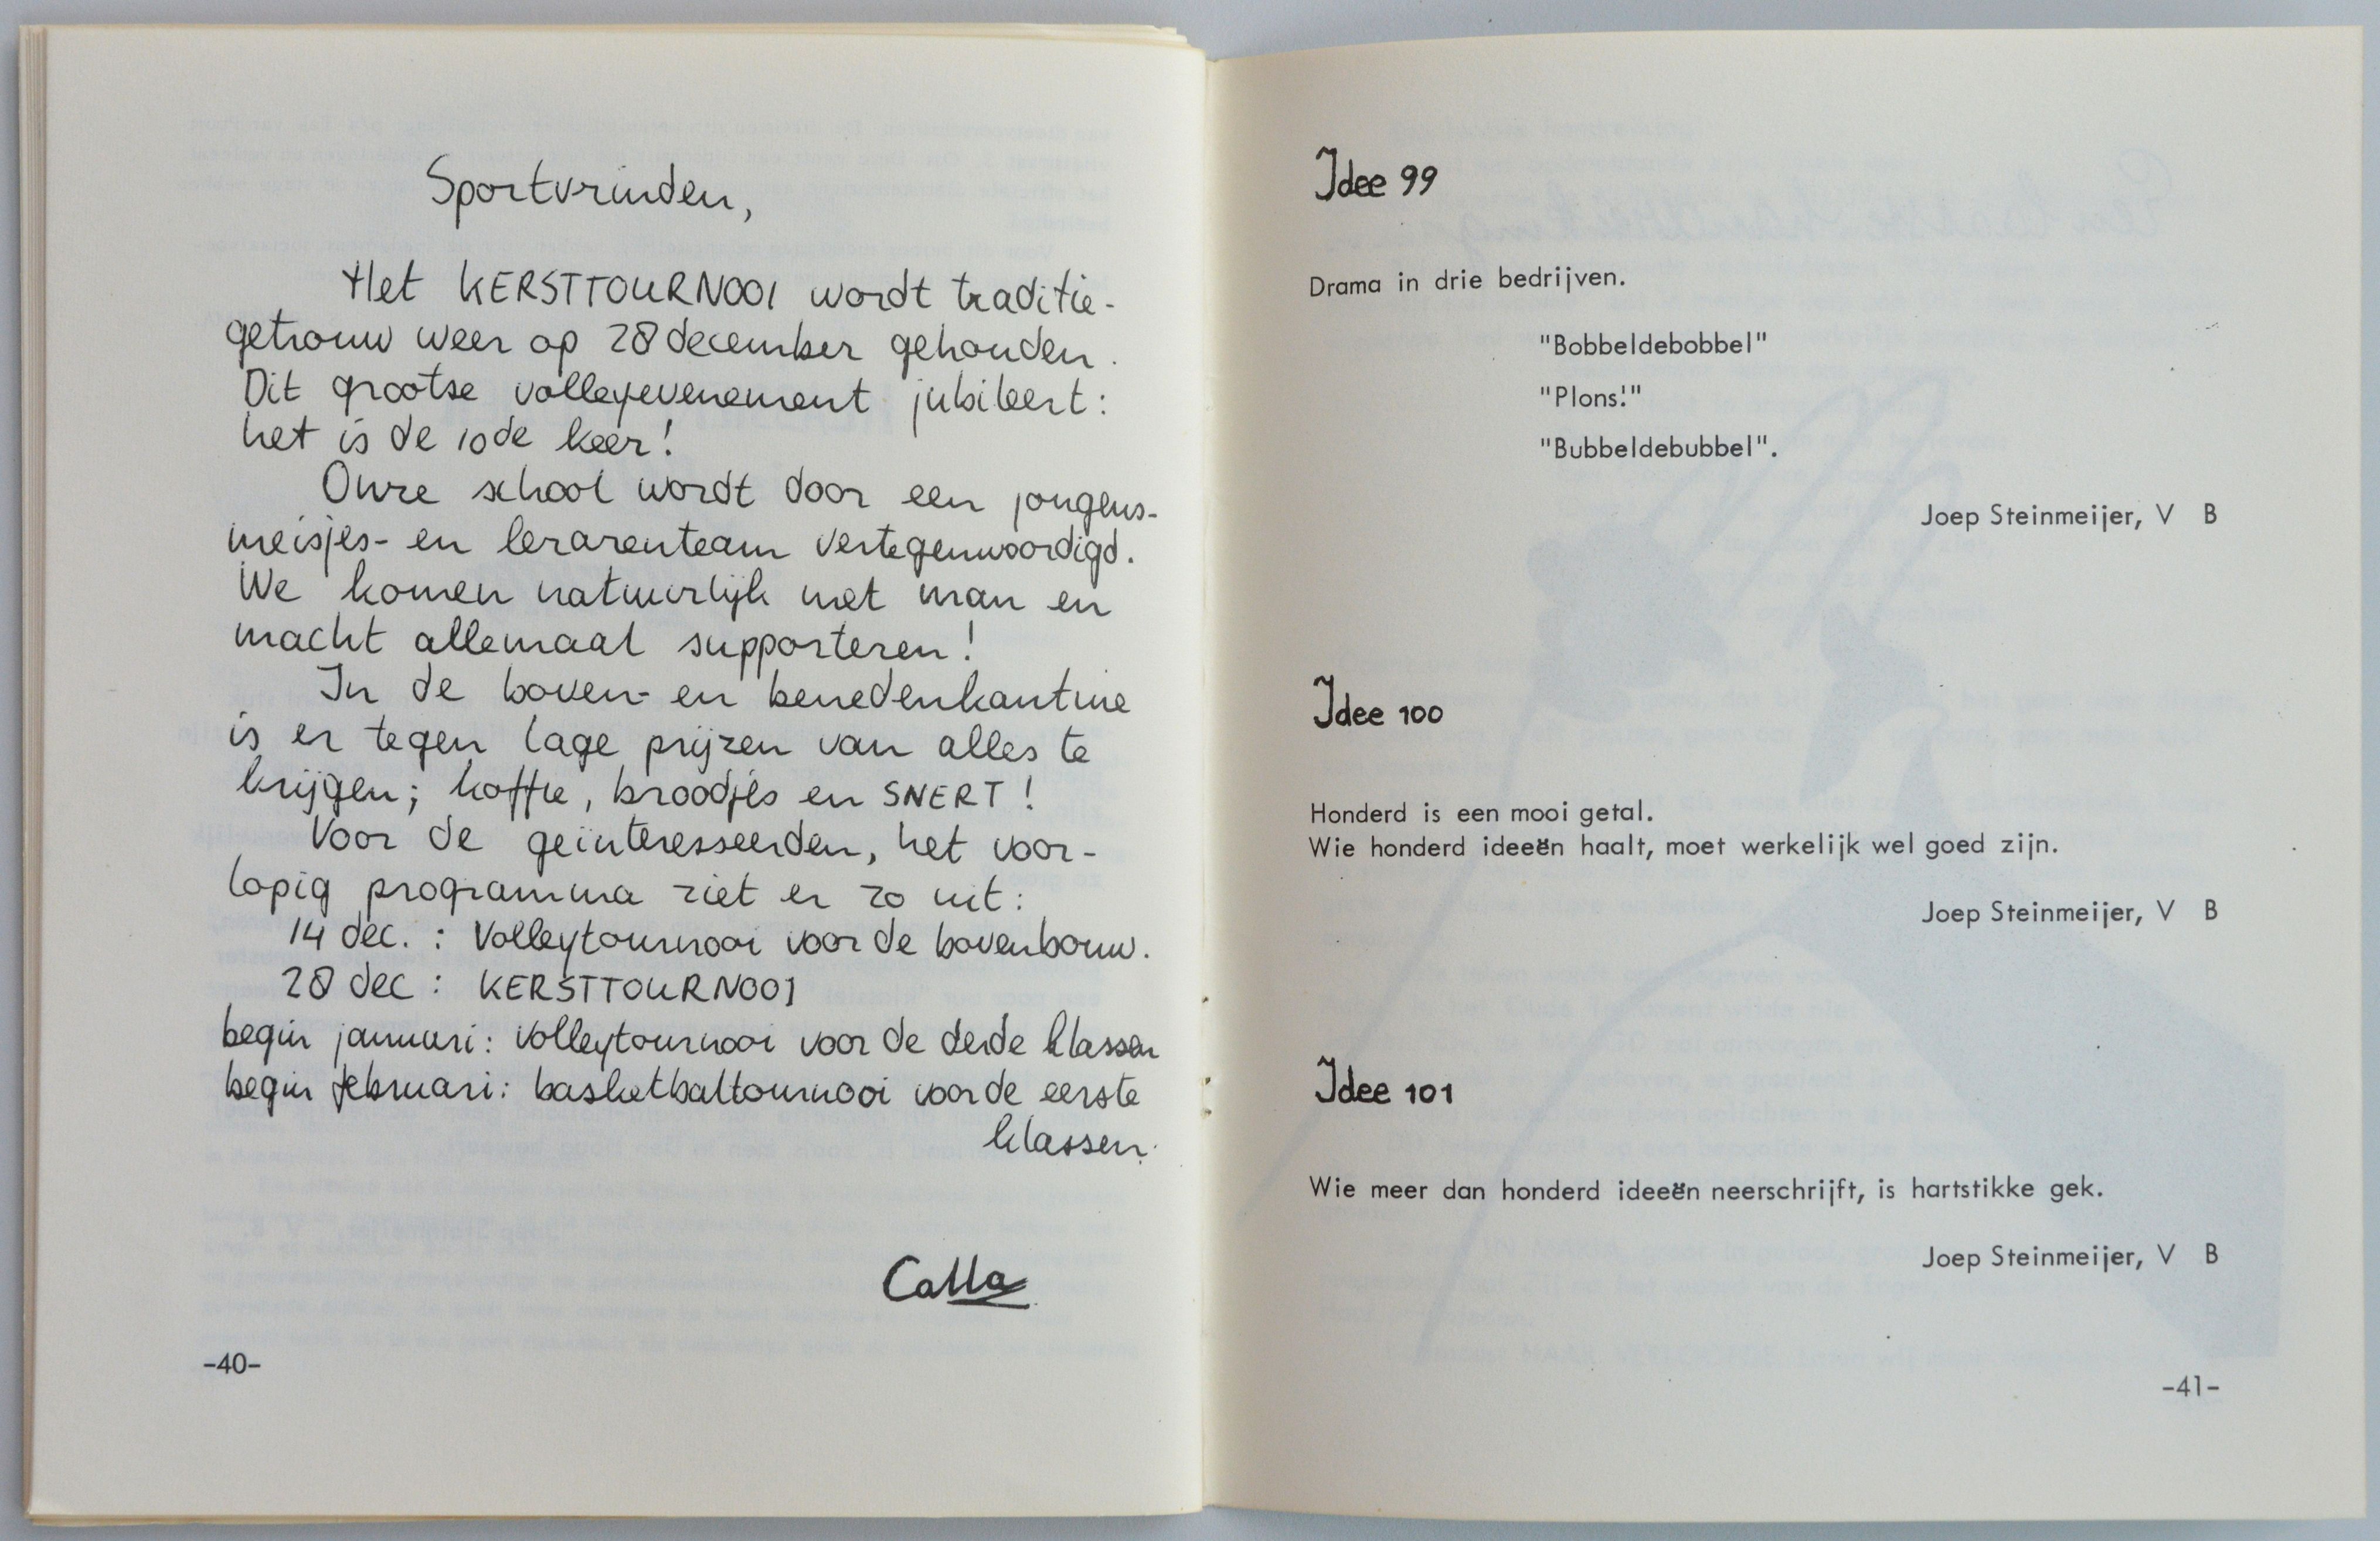 Sportvrinden,
Het KERSTTOURNOOI wordt traditie-
getrouw weer op 28 december gehouden.
Dit grootse volleyevenement jubileert:
het is de 10de keer!
Onze school wordt door een jongens-
meisjes- en lerarenteam vertegenwoordigd.
We komen natuurlijk met man en
macht allemaal supporteren!
In de boven- en benedenkantine
is er tegen lage prijzen van alles te
krijgen; koffie, broodjes en SNERT!
Voor de geïnteresseerden, het voor-
lopig programma ziet er zo uit:
14 dec. : Volleytournooi voor de bovenbouw.
28 dec : KERSTTOURNOOI
begin januari: volleytournooi voor de derde klassen
begin februari: basketbaltournooi voor de eerste
klassen.
Calla
-40-
Idee 99
Drama in drie bedrijven.
"Bobbeldebobbel"
"Plons!"
"Bubbeldebubbel".
Joep Steinmeijer, V B
Idee 100
Honderd is een mooi getal.
Wie honderd ideeën haalt, moet werkelijk wel goed zijn.
Joep Steinmeijer, V B
Idee 101
Wie meer dan honderd ideeën neerschrijft, is hartstikke gek.
Joep Steinmeijer, V B
-41-